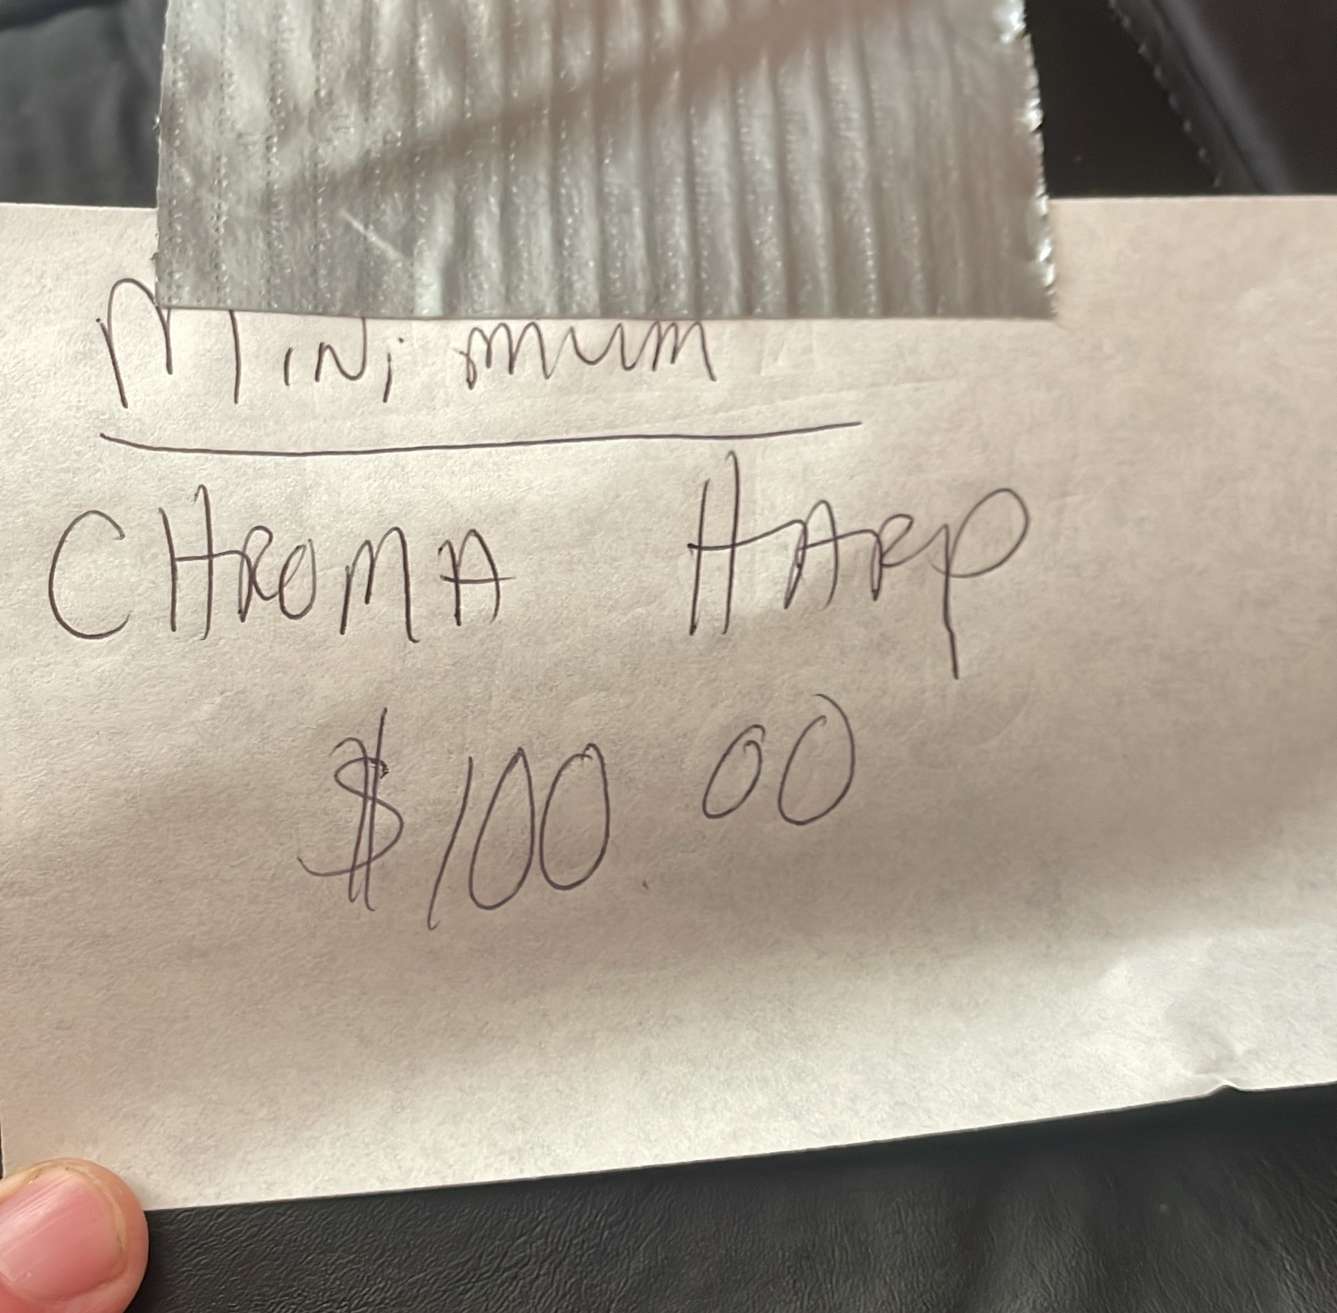 MINimum
CHROMA HARP
$100.00